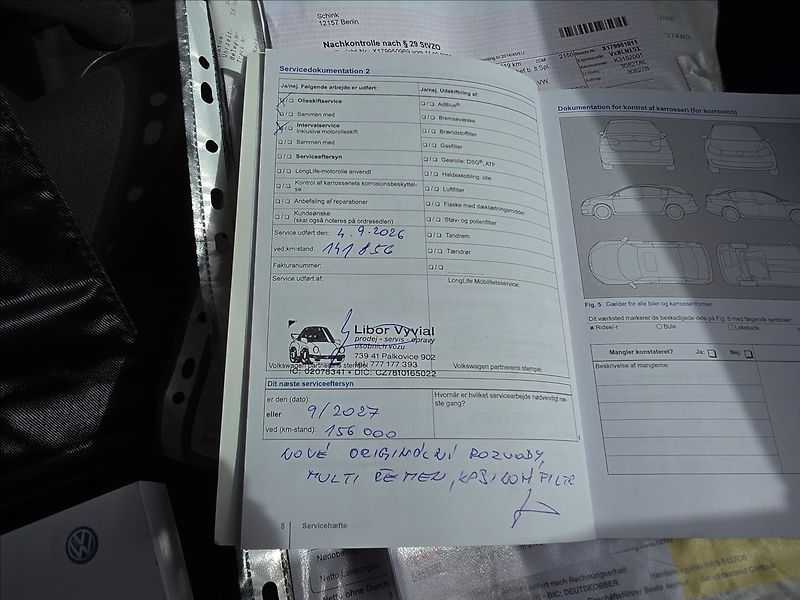 Schink
12157 Berlin
Nachkontrolle nach § 29 StVZO
Servicedokumentation 2
Ja/nej. Følgende arbejde er udført:
Olieskiftservice
Sammen med
Intervalservice
inklusive motorolieskift
Sammen med
Serviceeftersyn
LongLife-motorolie anvendt
Kontrol af karrosseriets korrosionsbeskyttel-
se
Anbefaling af reparationer
Kundeønske
(skal også noteres på ordresedlen)
Service udført den: 4.9.2026
ved km-stand: 141 856
Fakturanummer:
Service udført af:
Libor Vyvial
prodej - servis - opravy
osobních vozů
739 41 Palkovice 902
tel. 777 177 393
Volkswagen partnerens stempel
IČ: 02078341 • DIČ: CZ7810165022
Ja/nej. Udskiftning af:
AdBlue®
Bremsevæske
Brændstoffilter
Gasfilter
Gearolie: DSG®, ATF
Haldexkobling: olie
Luftfilter
Flaske med dæktætningsmiddel
Støv- og pollenfilter
Tandrem
Tændrør
LongLife Mobilitetsservice:
Volkswagen partnerens stempel
Dit næste serviceeftersyn
er den (dato):
eller 9/2027
ved (km-stand): 156 000
Hvornår er hvilket servicearbejde nødvendigt næ-
ste gang?
NOVÉ ORIGINÁLNÍ ROZVODY,
MULTI ŘEMEN, KABINOVÝ FILTR
8 Servicehæfte
Dokumentation for kontrol af karrosseri (for korrosion)
Fig. 5 Gælder for alle biler og karrosseriformer
Dit værksted markerer de beskadigede dele på Fig. 5 med følgende symboler:
Ridse/-r
Bule
Lakskade
Mangler konstateret? Ja: Nej:
Beskrivelse af manglerne:
Netto-Leistungen